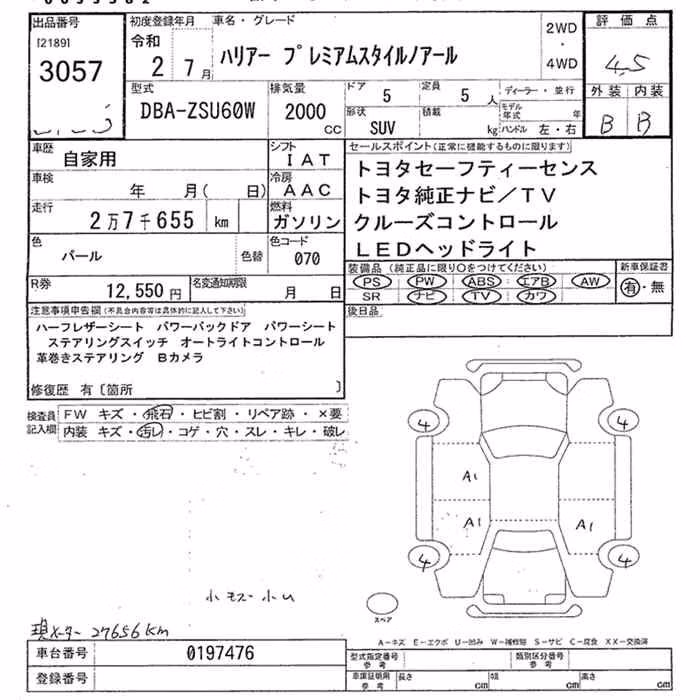 出品番号 初度登録年月 車名・グレード 評価点
[2189] 令和 2WD
3057 2 7月 ハリアー プレミアムスタイルノアール ・ 4.5
4WD
型式 排気量 ドア 定員 ディーラー・並行 外装 内装
DBA-ZSU60W 2000 5 5人 モデル年式 年 B B
CC 形状 積載 ハンドル 左・右
SUV kg
車歴 自家用 シフト IAT セールスポイント(正常に機能するものに限ります)
車検 年 月( 日) 冷房 AAC トヨタセーフティーセンス
トヨタ純正ナビ/TV
走行 2万7千655 km 燃料 ガソリン クルーズコントロール
LEDヘッドライト
色 パール 色替 色コード 070
装備品(純正品に限り○をつけてください) 新車保証書
PS PW ABS エアB AW 有・無
R券 12,550円 名変通知期限 月 日 SR ナビ TV カワ
注意事項申告欄(不具合内容等は具体的に記入して下さい) 後日品
ハーフレザーシート パワーバックドア パワーシート
ステアリングスイッチ オートライトコントロール
革巻きステアリング Bカメラ
修復歴 有〔箇所 〕
検査員 FW キズ・飛石・ヒビ割・リペア跡・×要
記入欄 内装 キズ・汚レ・コゲ・穴・スレ・キレ・破レ
4 4
A1
A1 A1
4 4
スペア
現メーター 27656km
A-キズ E-エクボ U-凹み W-補修跡 S-サビ C-腐食 XX-交換済
車台番号 0197476 型式指定番号 参考 類別区分番号 参考
登録番号 車庫証明用 参考 長さ cm 幅 cm 高さ cm